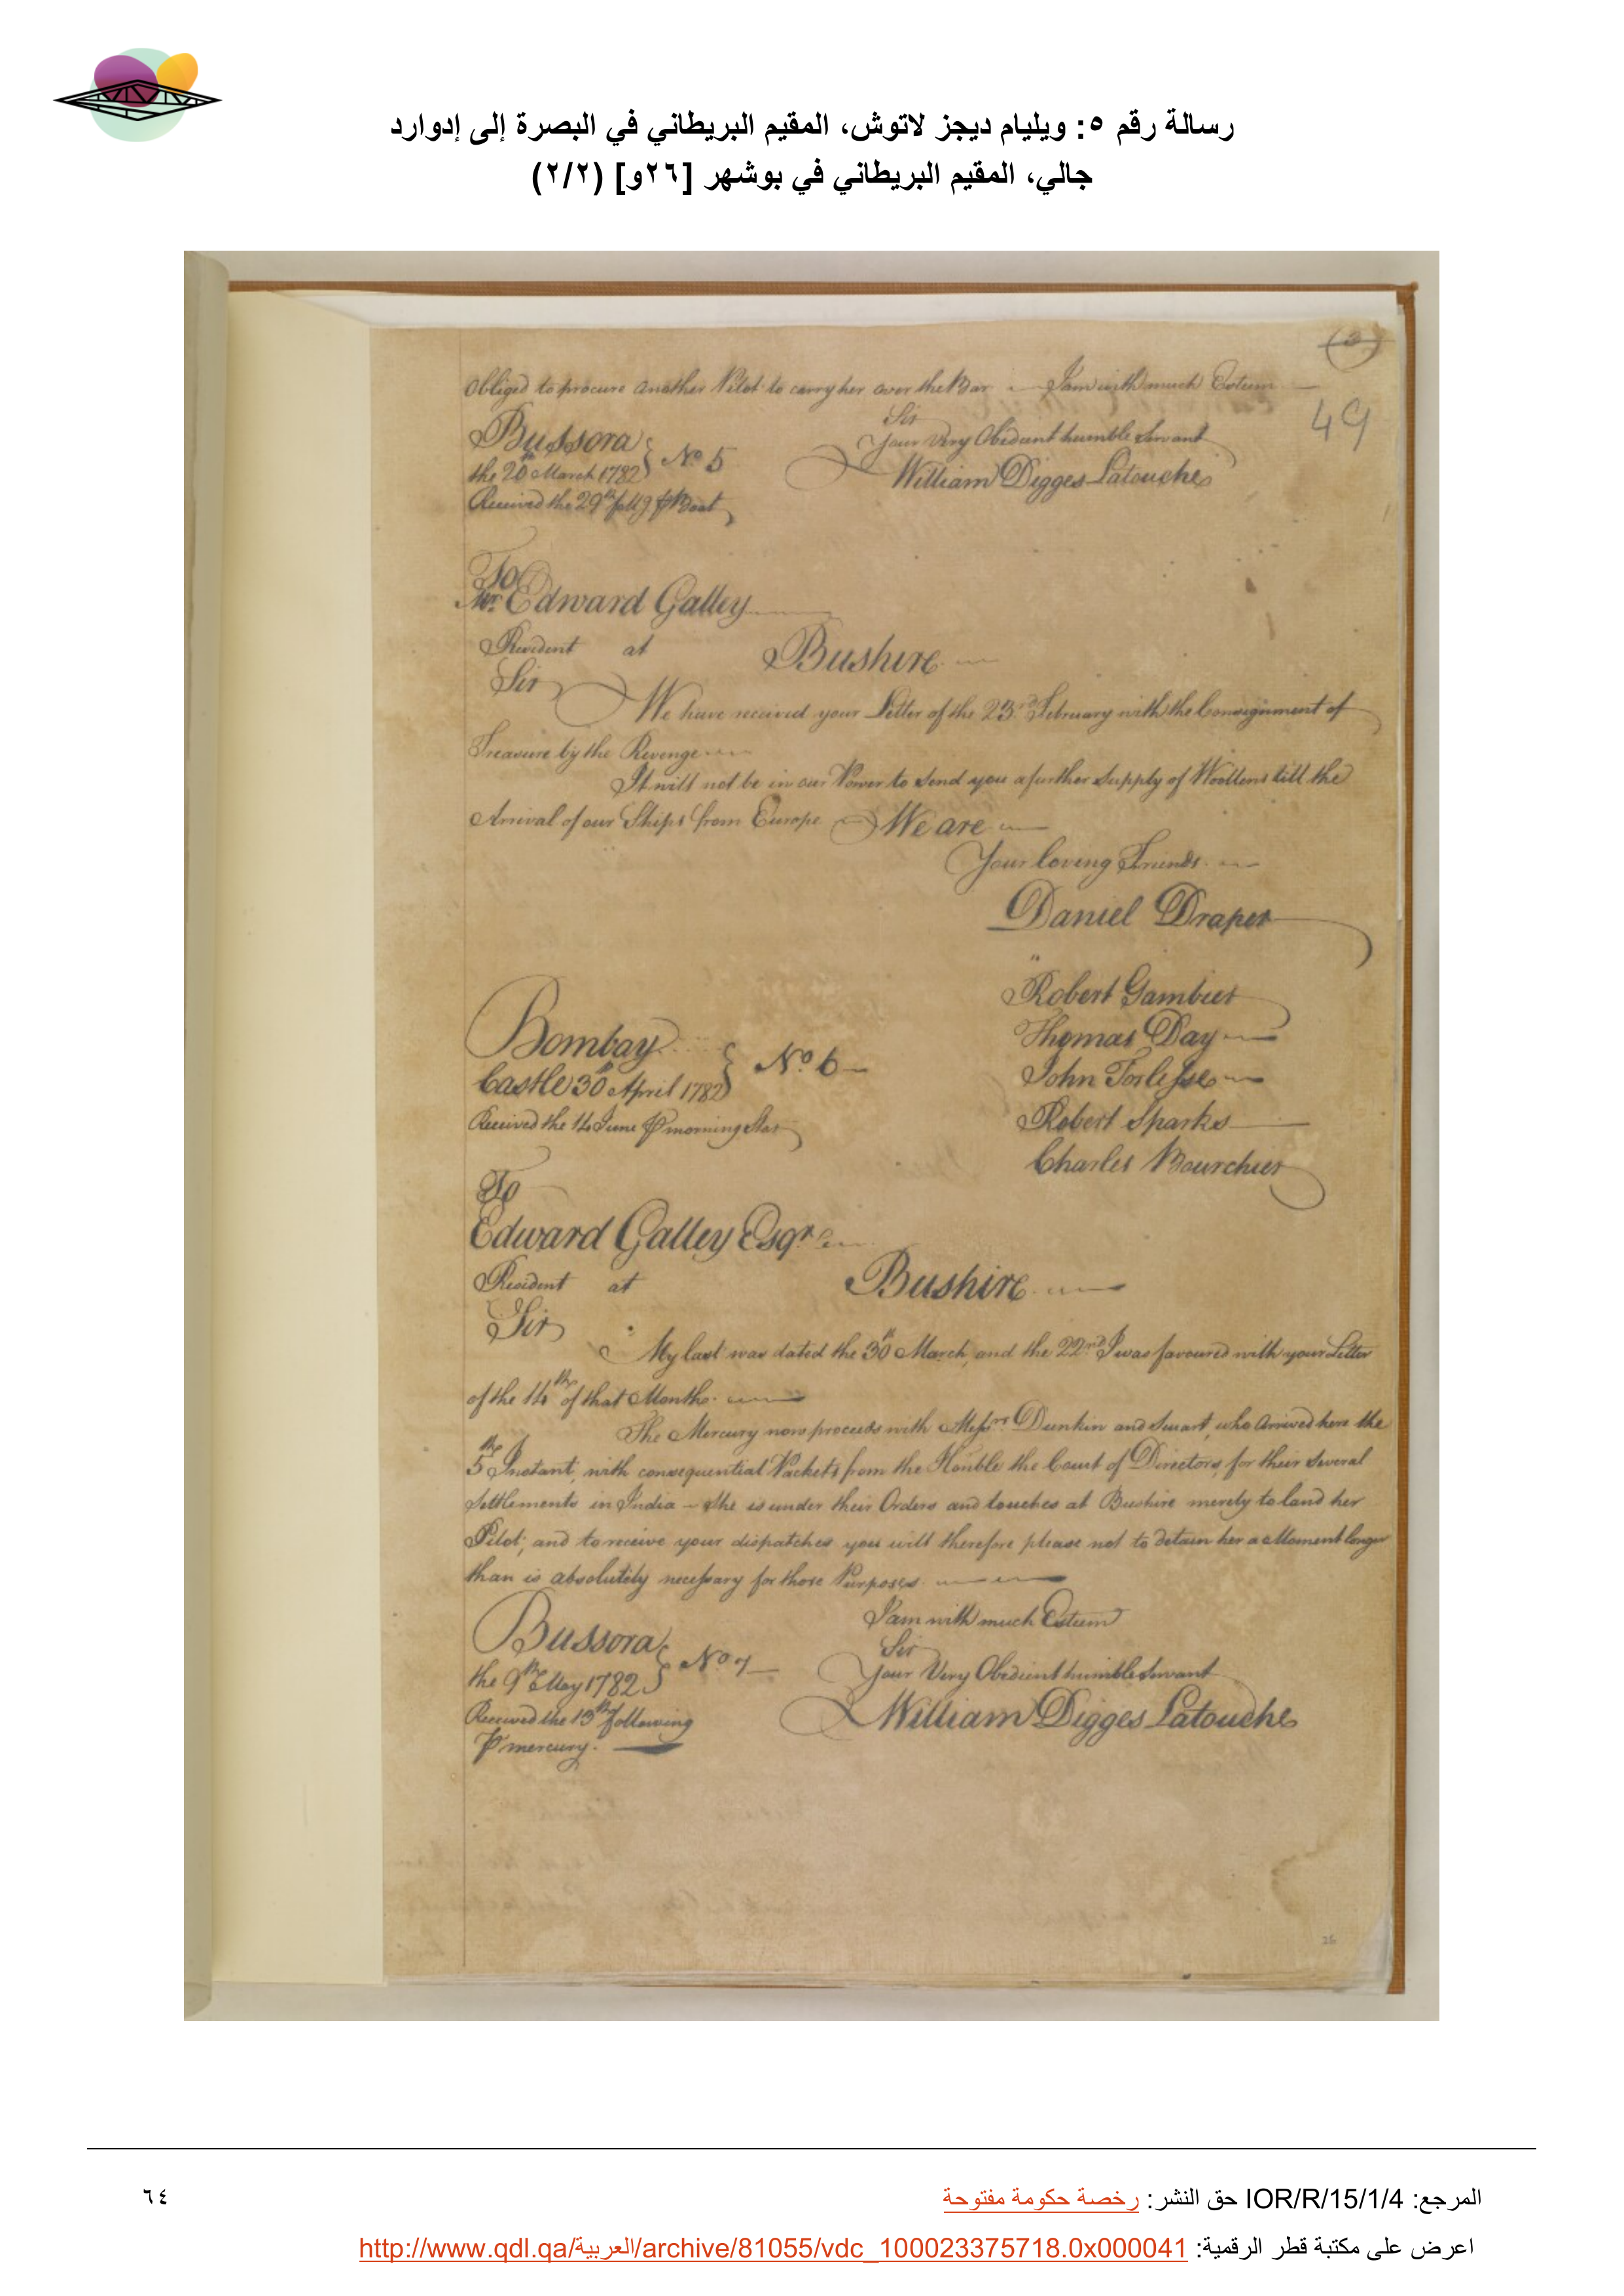 رسالة رقم ٥: ويليام ديجز لاتوش، المقيم البريطاني في البصرة إلى إدوارد
جالي، المقيم البريطاني في بوشهر [٢٦و] (٢/٢)
(3)
Obliged to procure another Pilot to carry her over the Bar I am with much Esteem
49
Sir
Your Very Obedient humble Servant
William Digges Latouche
Bussora
the 20th March 1782 } No. 5
Received the 29th follg Boat
To
Mr. Edward Galley
Resident at Bushire
Sir
We have received your Letter of the 23rd February with the Consignment of
Treasure by the Revenge
It will not be in our Power to send you a further Supply of Woollens till the
Arrival of our Ships from Europe We are
Your loving Friends
Daniel Draper
Robert Gambier
Thomas Day
John Torlesse
Robert Sparks
Charles Bourchier
Bombay
Castle 30th April 1782 } No. 6
Received the 14 June morning Star
To
Edward Galley Esqr.
Resident at Bushire
Sir
My last was dated the 30th March, and the 22nd I was favoured with your Letter
of the 14th of that Month.
The Mercury now proceeds with Messrs. Dunkin and Smart, who Arrived here the
5th Instant, with consequential Packets from the Honble the Court of Directors, for their several
Settlements in India – She is under their Orders and touches at Bushire merely to land her
Pilot; and to receive your dispatches you will therefore please not to detain her a Moment longer
than is absolutely necessary for those Purposes.
I am with much Esteem
Sir
Your Very Obedient humble Servant
William Digges Latouche
Bussora
the 9th May 1782 } No. 7
Received the 13th following
mercury.
26
المرجع: IOR/R/15/1/4 حق النشر: رخصة حكومة مفتوحة
٦٤
اعرض على مكتبة قطر الرقمية: http://www.qdl.qa/العربية/archive/81055/vdc_100023375718.0x000041